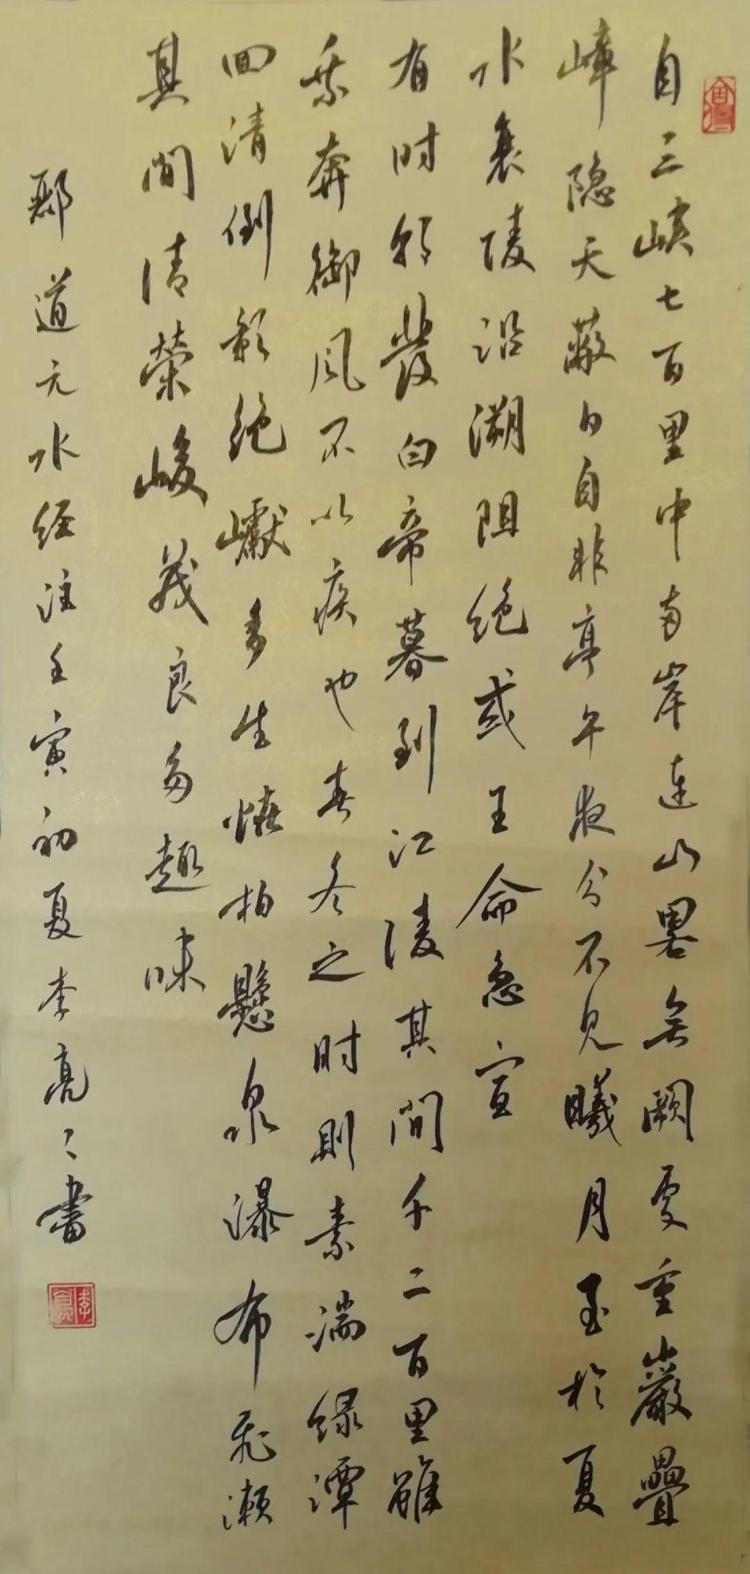 自三峡七百里中两岸连山略无阙处重巖疊
嶂隐天蔽日自非亭午夜分不见曦月至於夏
水襄陵沿溯阻绝或王命急宣
有时朝發白帝暮到江陵其间千二百里雖
乘奔御风不以疾也春冬之时则素湍绿潭
回清倒影绝巘多生怪柏懸泉瀑布飛漱
其间清榮峻茂良多趣味
郦道元水经注壬寅初夏李亮亮書